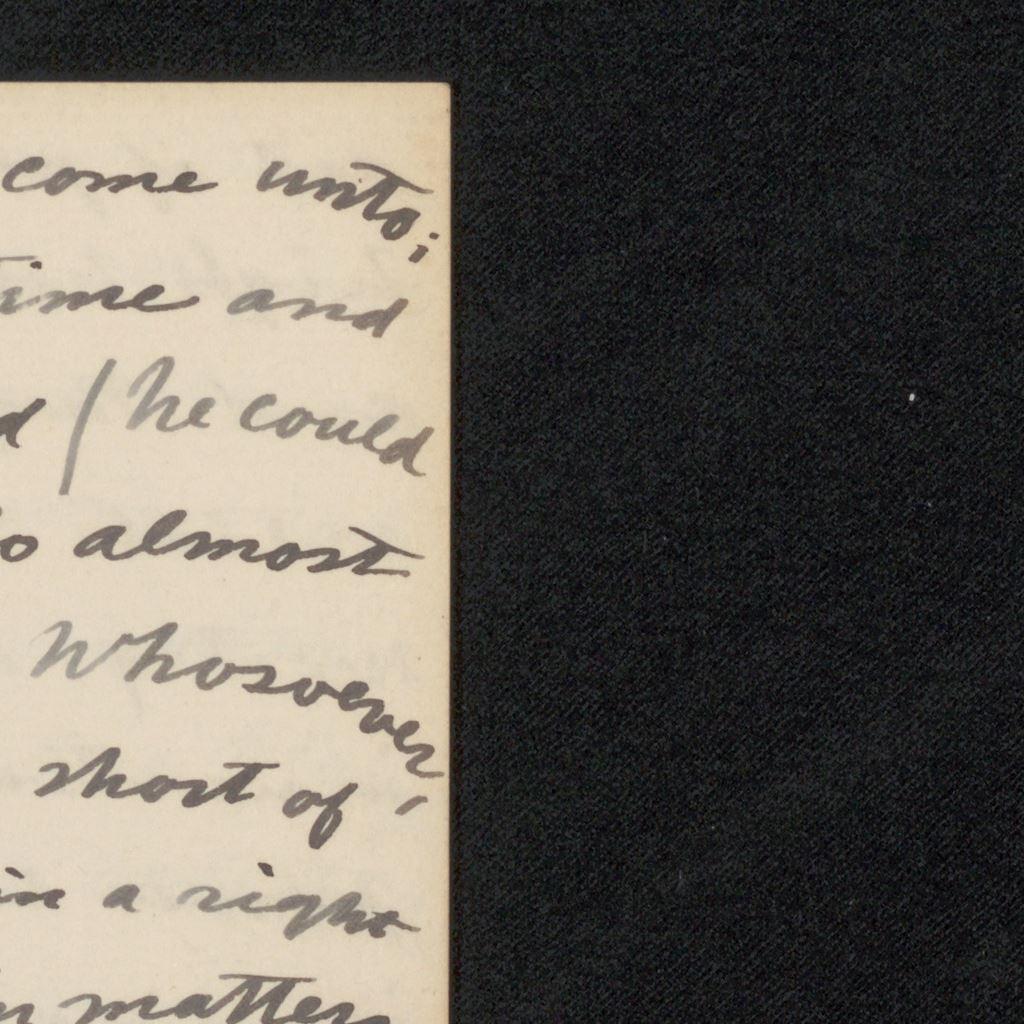 come unto;
time and
d / he could
o almost
Whosoever,
short of
in a right
matter